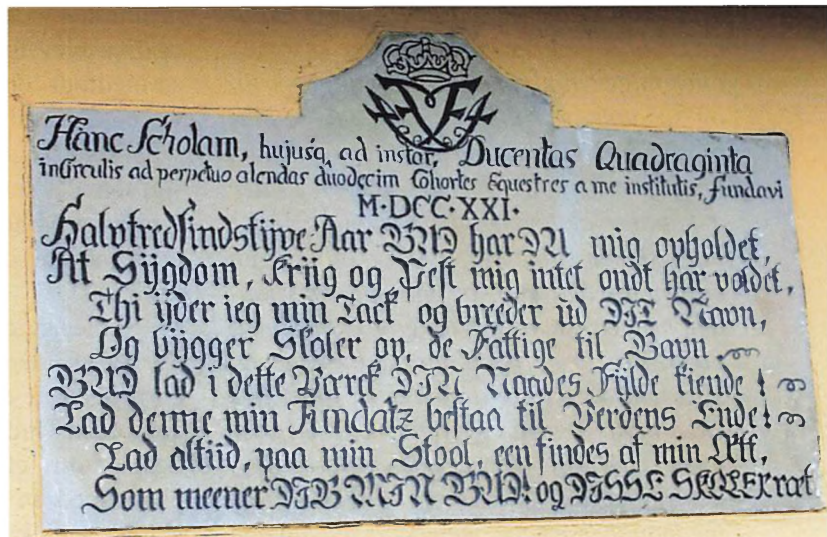 Hanc Scholam, hujusq, ad instar, Ducentas Quadraginta
in Circulis ad perpetuo alendas duodecim Cohortes Equestres a me institutis, fundavi
M·DCC·XXI·
Halvtredsindstÿve Aar GUD har DU mig opholdet,
At Sÿgdom, Kriig og Pest mig intet ondt har voldet,
Thi ÿder ieg min Tack og breeder ud DIT Navn,
Og bÿgger Skoler op, de Fattige til Gavn
GUD lad i dette Værck DIN Naades Fÿlde kiende!
Lad denne min Fundatz bestaa til Verdens Ende!
Lad altiid, paa min Stool, een findes af min Ætt,
Som meener DIG MIN GUD! og DISSE SKOLER ræt